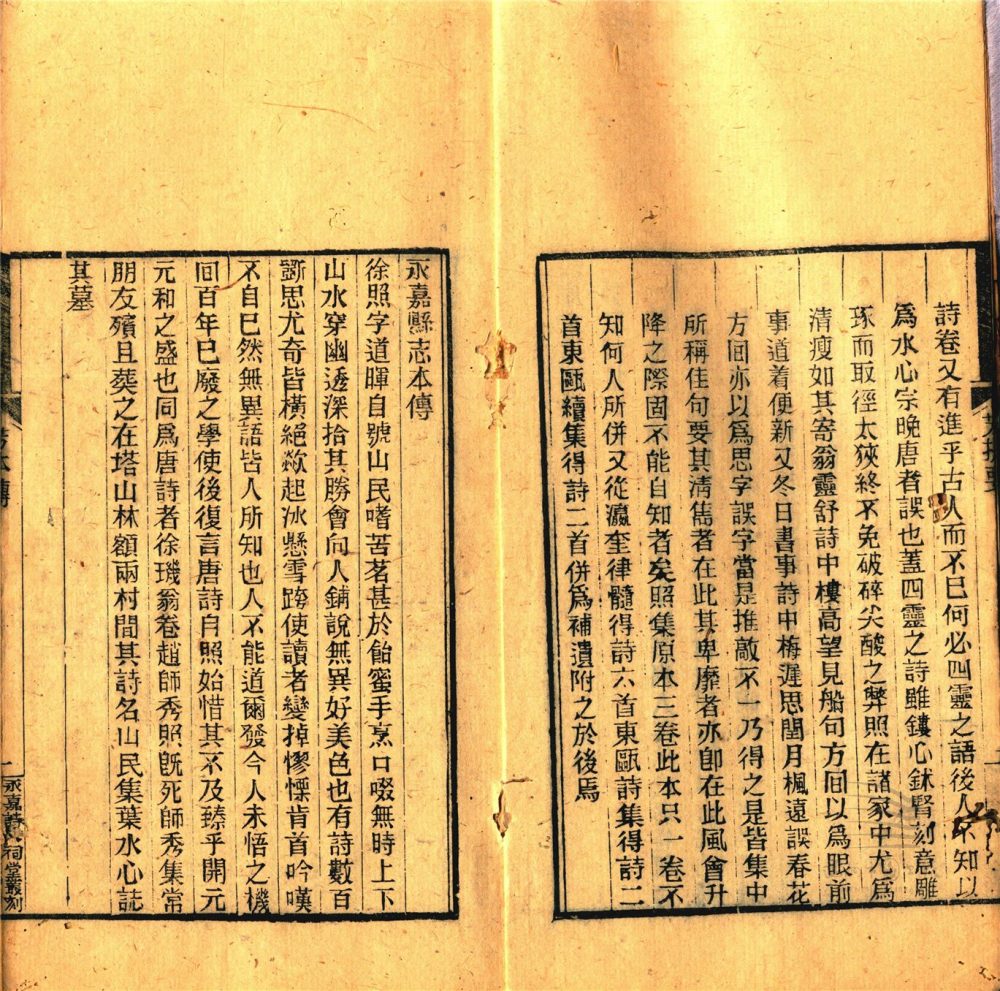 詩卷又有進乎古人而不已何必四靈之語後人不知以
爲水心宗晚唐者誤也蓋四靈之詩雖鏤心鉥腎刻意雕
琢而取徑太狹終不免破碎尖酸之弊照在諸家中尤爲
清瘦如其寄翁靈舒詩中樓高望見船句方回以爲眼前
事道着便新又冬日書事詩中梅遲思閏月楓遠誤春花
方回亦以爲思字誤字當是推敲不一乃得之是皆集中
所稱佳句要其清雋者在此其卑靡者亦卽在此風會升
降之際固不能自知者矣照集原本三卷此本只一卷不
知何人所併又從瀛奎律髓得詩六首東甌詩集得詩二
首東甌續集得詩二首併爲補遺附之於後焉
永嘉縣志本傳
徐照字道暉自號山民嗜苦茗甚於飴蜜手烹口啜無時上下
山水穿幽透深拾其勝會向人鋪說無異好美色也有詩數百
斲思尤奇皆橫絕欻起冰懸雪跨使讀者變掉憀慄肯首吟嘆
不自已然無異語皆人所知也人不能道爾發今人未悟之機
回百年已廢之學使後復言唐詩自照始惜其不及臻乎開元
元和之盛也同爲唐詩者徐璣翁卷趙師秀照旣死師秀集常
朋友殯且葬之在塔山林額兩村間其詩名山民集葉水心誌
其墓
一
永嘉詩人祠堂叢刻